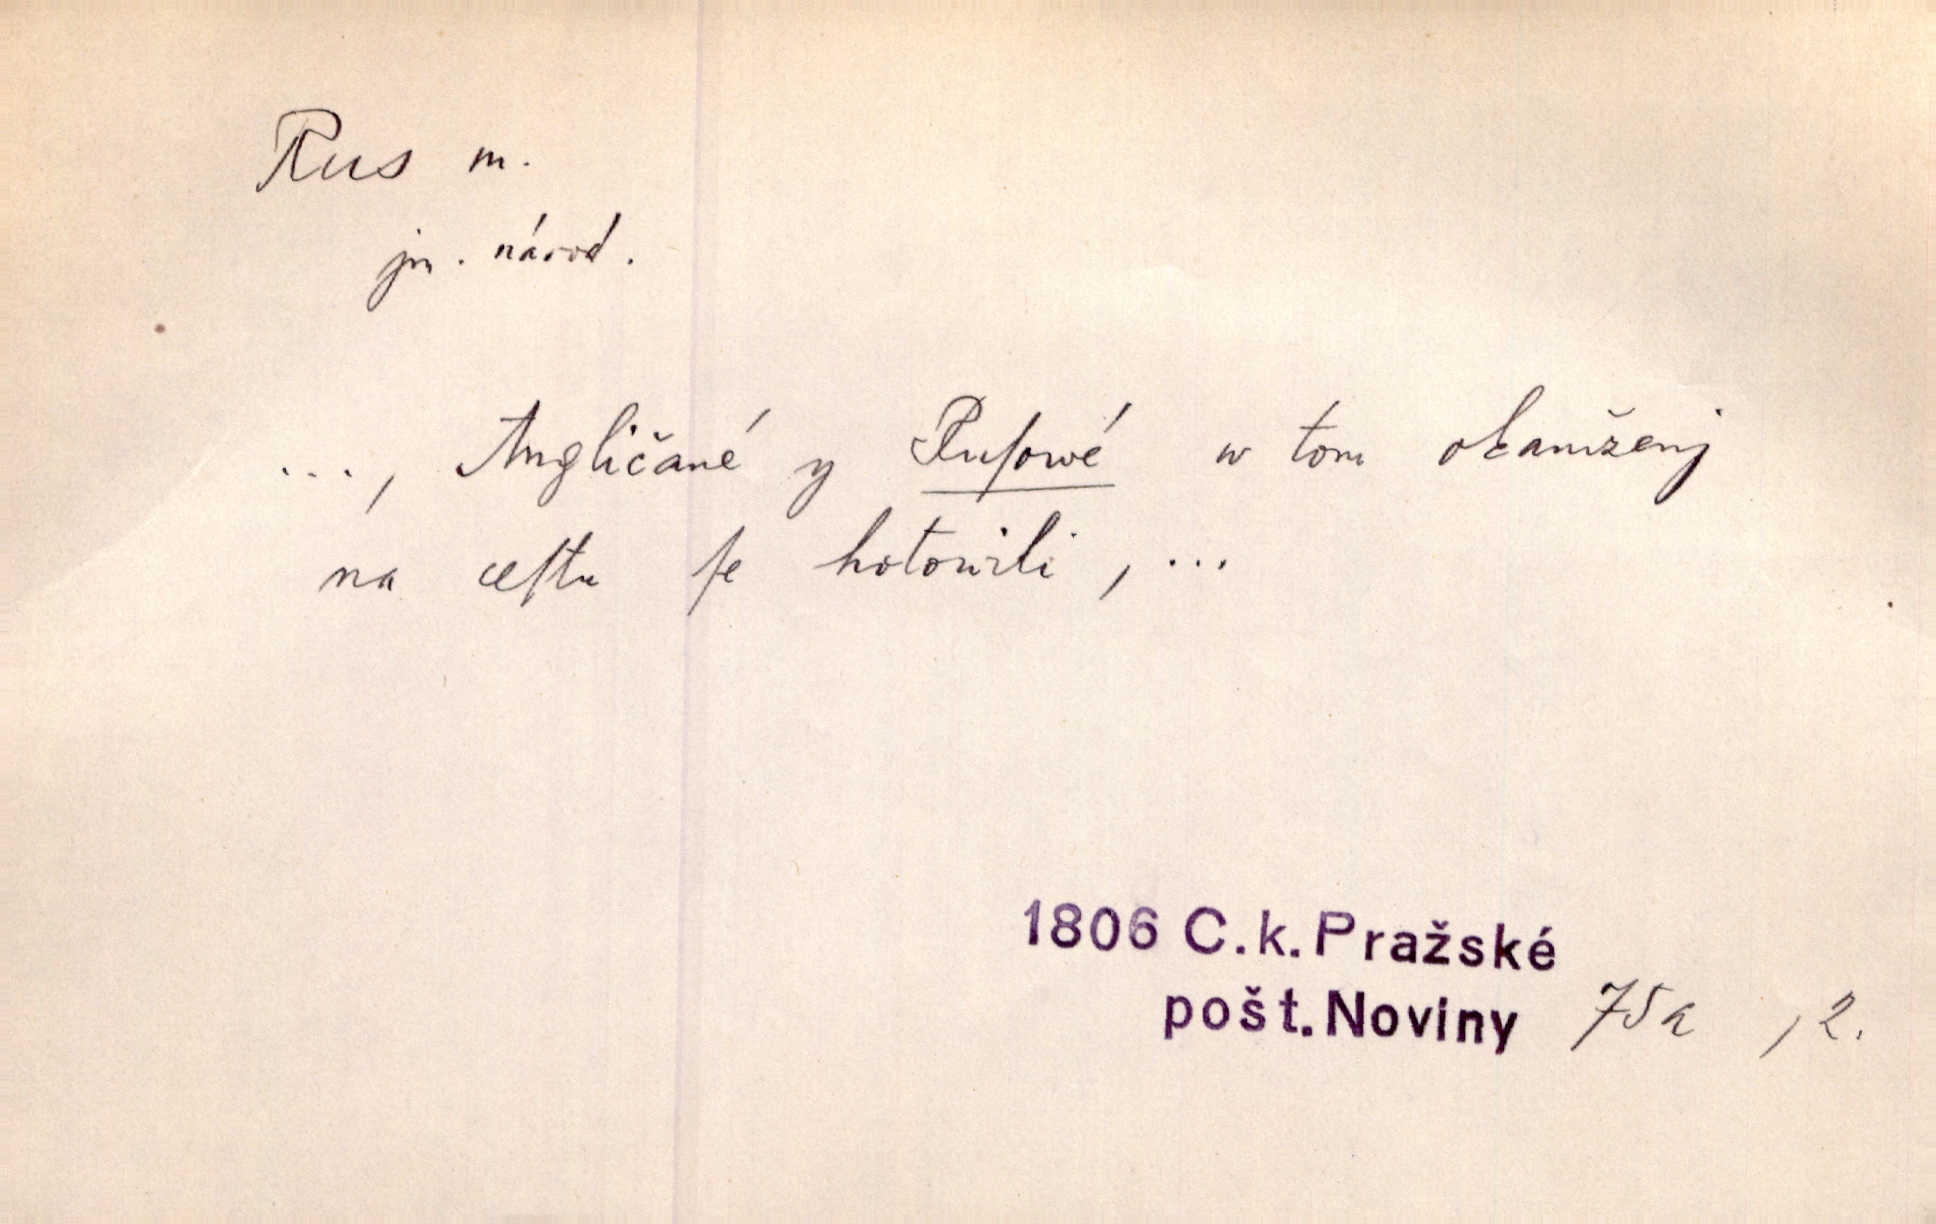 Rus m.
jm. národ.
..., Angličané y Ruſowé w tom okamženj
na ceſtu ſe hotowili, ...
1806 C.k. Pražské
pošt. Noviny 75a /2.